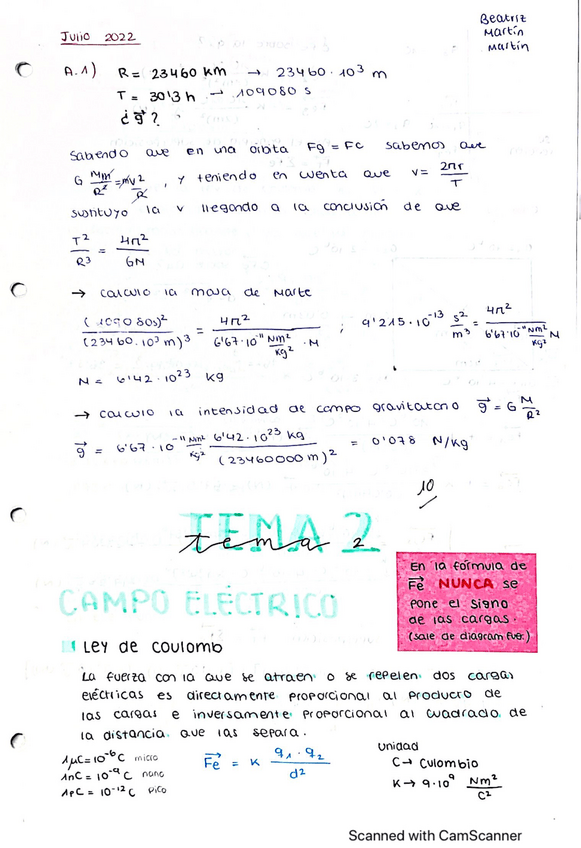 Beatriz
Martín
Martín
Julio 2022
A.1) R = 23460 km → 23460·10³ m
T = 30'3 h → 109080 s
¿g⃗?
Sabiendo que en una órbita Fg = Fc sabemos que
G Mm/R² = mv²/R, y teniendo en cuenta que v = 2πr/T
sustituyo la v llegando a la conclusión de que
T²/R³ = 4π²/GM
→ calculo la masa de Marte
(109080s)²/(23460·10³ m)³ = 4π²/(6'67·10⁻¹¹ Nm²/Kg² · M) ; 9'215·10⁻¹³ s²/m³ = 4π²/(6'67·10⁻¹¹ Nm²/Kg² M)
M = 6'42·10²³ kg
→ calculo la intensidad de campo gravitatorio g⃗ = G M/R²
g⃗ = 6'67·10⁻¹¹ Nm²/Kg² 6'42·10²³ kg/(23460000m)² = 0'078 N/Kg
10
TEMA 2
tema 2
CAMPO ELÉCTRICO
En la fórmula de
Fe NUNCA se
pone el signo
de las cargas
(sale de diagram fuer.)
Ley de coulomb
La fuerza con la que se atraen o se repelen dos cargas
eléctricas es directamente proporcional al producto de
las cargas e inversamente proporcional al cuadrado de
la distancia que las separa.
1μC = 10⁻⁶ C micro
1nC = 10⁻⁹ C nano
1pC = 10⁻¹² C pico
F⃗e = K q₁·q₂/d²
unidad
C → Culombio
K → 9·10⁹ Nm²/C²
Scanned with CamScanner